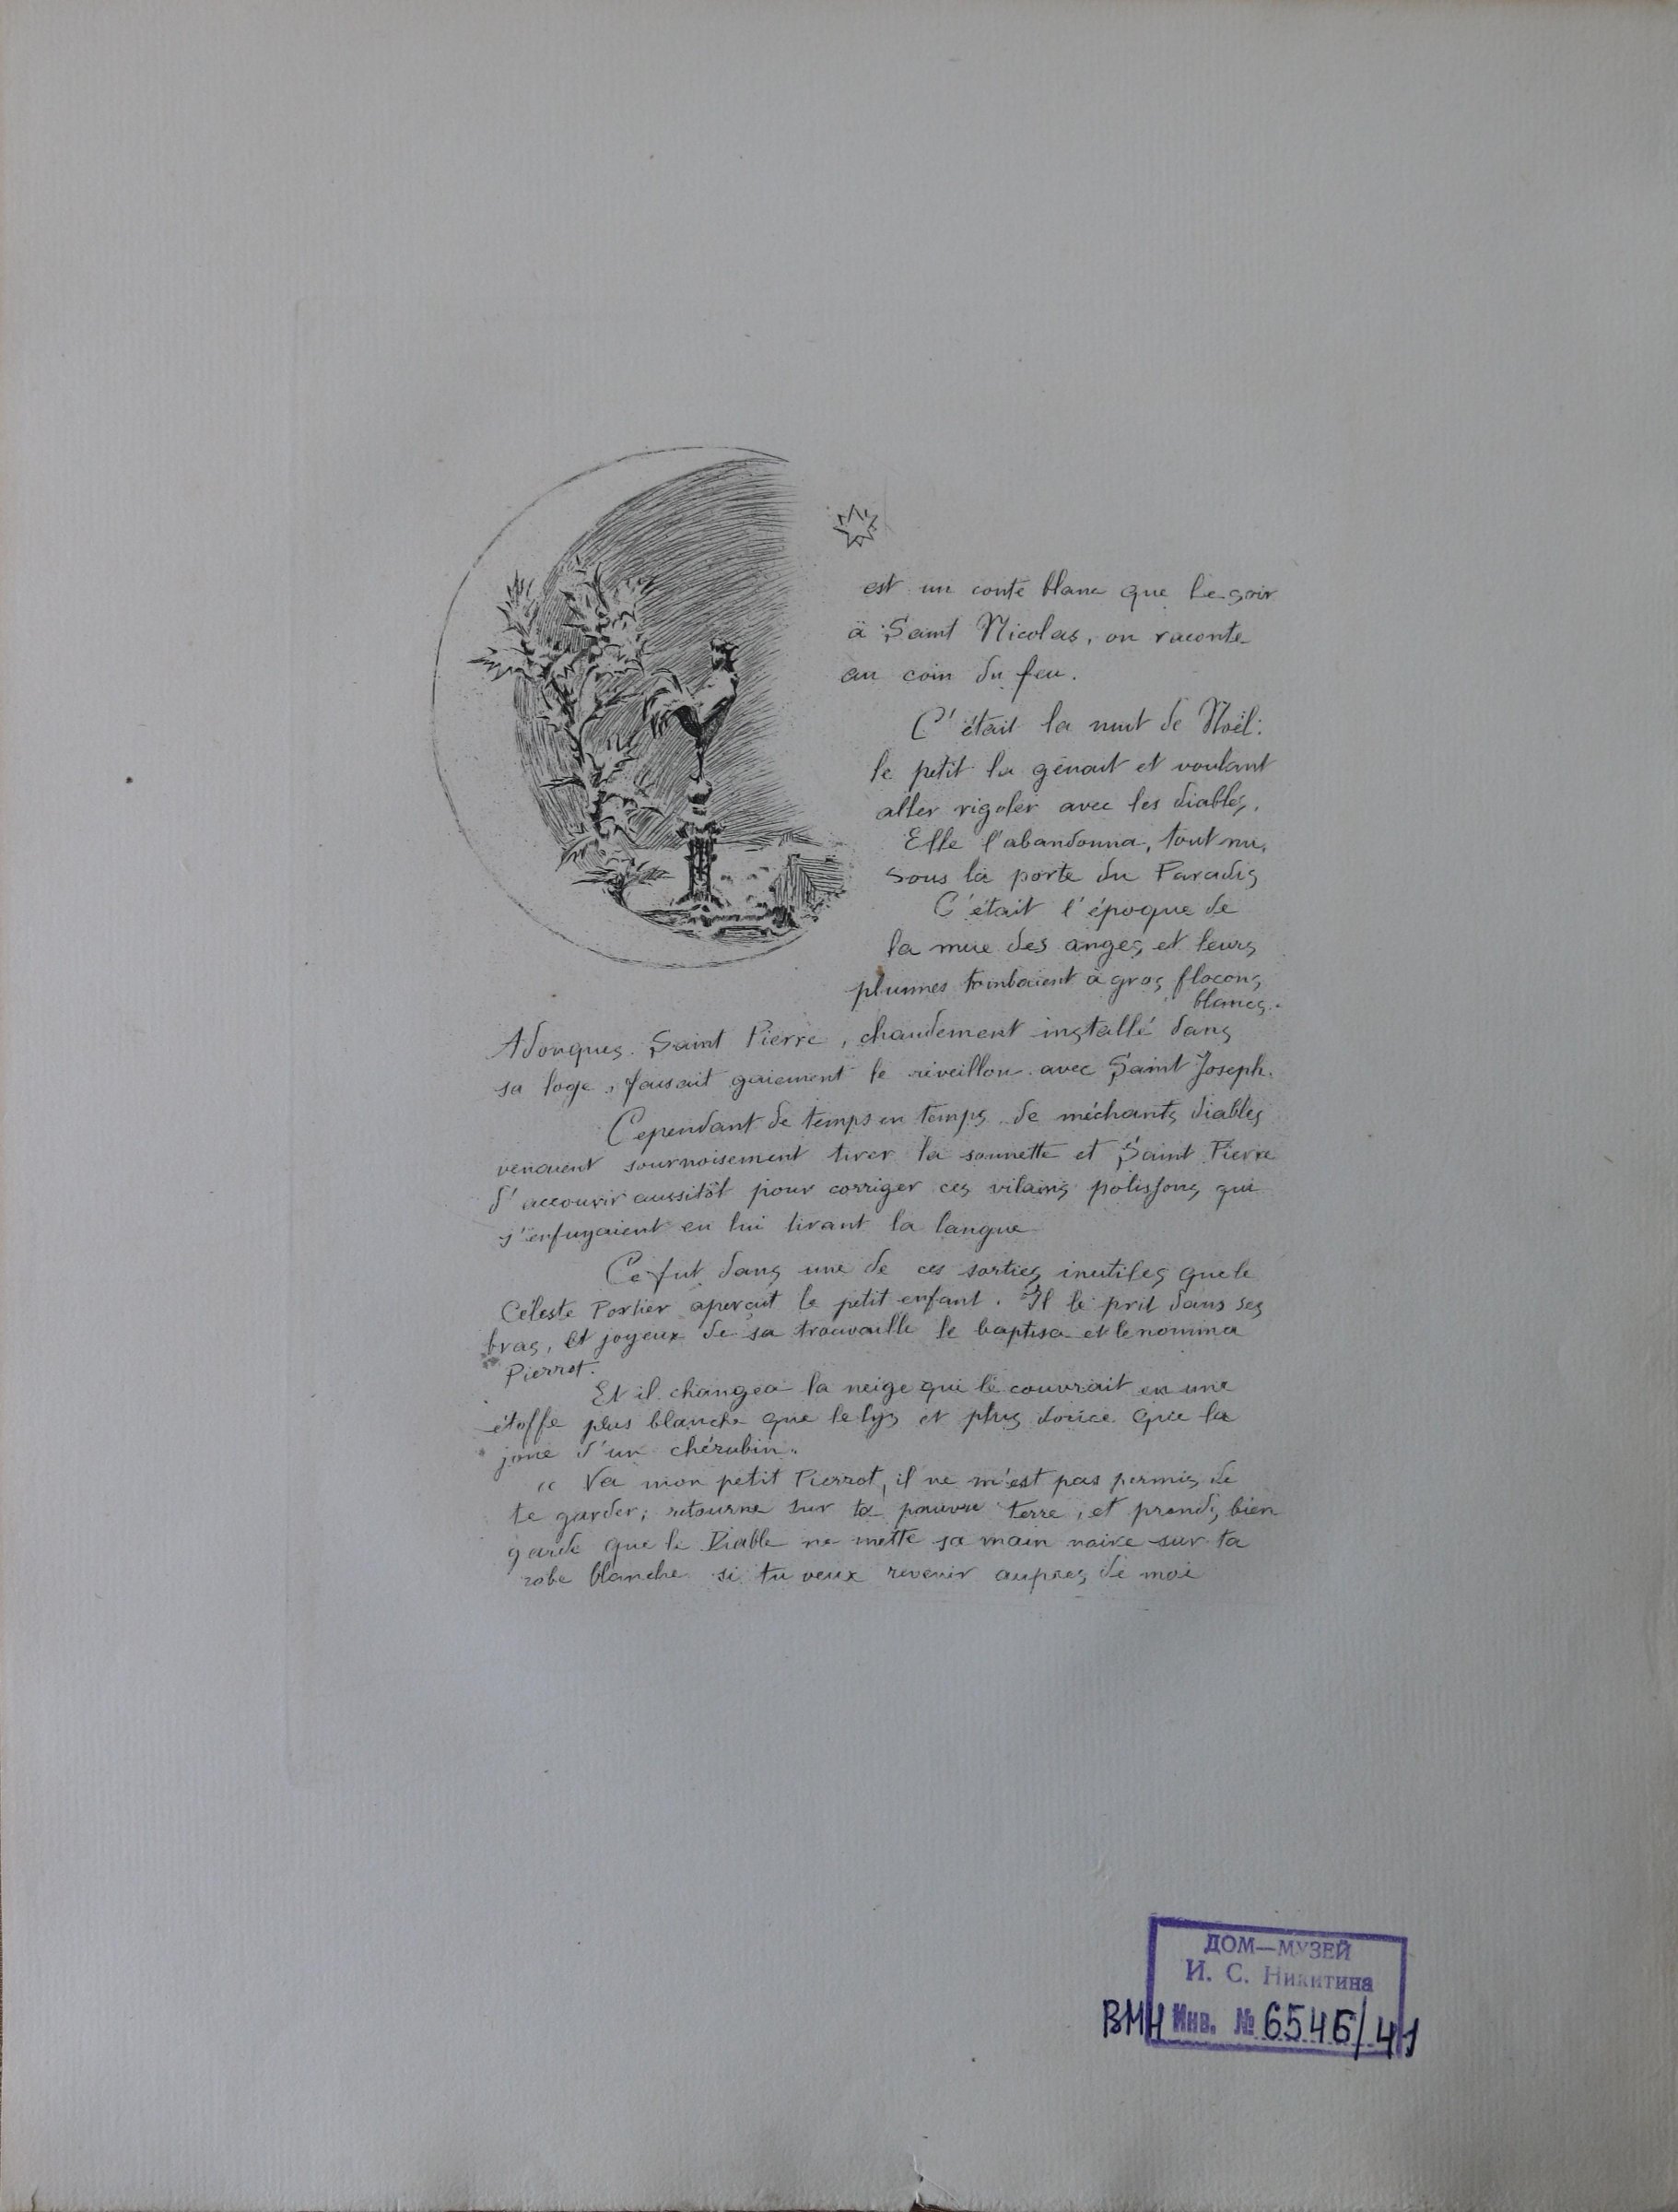 est un conte blanc que le soir
à Saint Nicolas, on raconte
au coin du feu.
C'était la nuit de Noël:
le petit la gênait et voulant
aller rigoler avec les diables,
Elle l'abandonna, tout nu,
sous la porte du Paradis
C'était l'époque de
la mue des anges, et leurs
plumes tombaient à gros flocons
blancs.
Adonques Saint Pierre, chaudement installé dans
sa loge, faisait gaiement le réveillon avec Saint Joseph.
Cependant de temps en temps de méchants diables
venaient sournoisement tirer la sonnette et Saint Pierre
d'accourir aussitôt pour corriger ces vilains polissons qui
s'enfuyaient en lui tirant la langue
Ce fut dans une de ces sorties inutiles que le
Céleste Portier aperçut le petit enfant. Il le prit dans ses
bras, et joyeux de sa trouvaille le baptisa et le nomma
Pierrot.
Et il changea la neige qui le couvrait en une
étoffe plus blanche que le lys et plus douce que la
joue d'un chérubin.
« Va mon petit Pierrot, il ne m'est pas permis de
te garder; retourne sur ta pauvre terre, et prends bien
garde que le Diable ne mette sa main noire sur ta
robe blanche si tu veux revenir auprès de moi
ДОМ—МУЗЕЙ
И. С. Никитина
ВМН Инв. № 6546/41